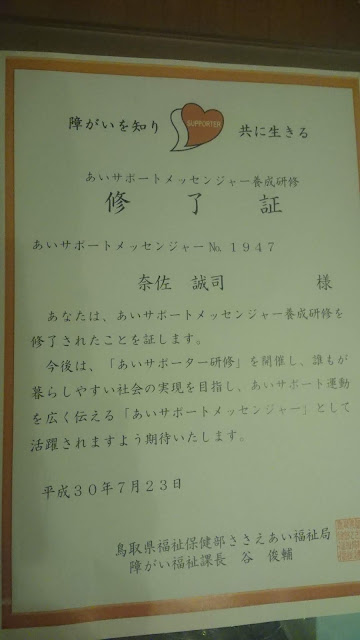 障がいを知り
SUPPORTER
共に生きる
あいサポートメッセンジャー養成研修
修了証
あいサポートメッセンジャー№１９４７
奈佐 誠司 様
あなたは、あいサポートメッセンジャー養成研修を
修了されたことを証します。
今後は、「あいサポーター研修」を開催し、誰もが
暮らしやすい社会の実現を目指し、あいサポート運動
を広く伝える「あいサポートメッセンジャー」として
活躍されますよう期待いたします。
平成３０年７月２３日
鳥取県福祉保健部ささえあい福祉局
障がい福祉課長 谷 俊輔